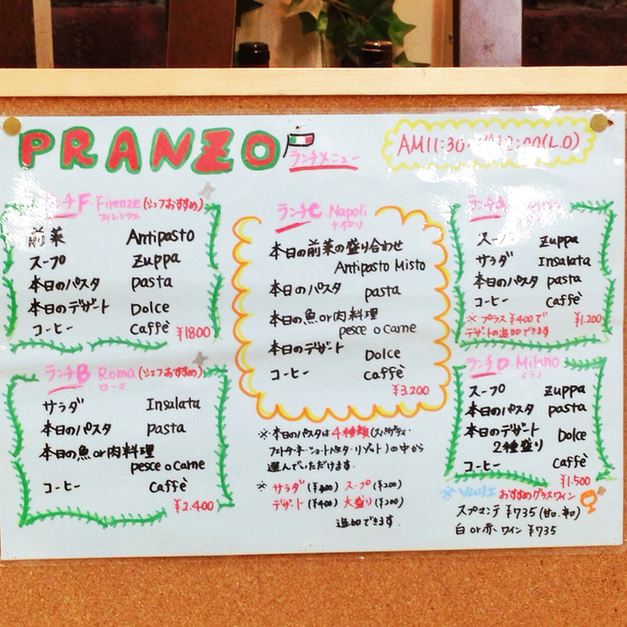 PRANZO
ランチメニュー
AM11:30
2:00(L.O)
ランチF Firenze (シェフおすすめ)
フィレンツェ
前菜 Antipasto
スープ zuppa
本日のパスタ pasta
本日のデザート Dolce
コーヒー Caffè
¥1800
ランチB Roma (シェフおすすめ)
ローマ
サラダ Insalata
本日のパスタ pasta
本日の魚or肉料理
pesce o Carne
コーヒー Caffè
¥2.400
ランチC Napoli
ナポリ
本日の前菜の盛り合わせ
Antipasto Misto
本日のパスタ pasta
本日の魚or肉料理
pesce o Carne
本日のデザート Dolce
コーヒー Caffè
¥3.200
※本日のパスタは4種類(スパゲティ・
フェトチーネ・ショートパスタ・リゾット)の中から
選んでいただけます。
※サラダ(¥400) スープ(¥200)
デザート(¥400) 大盛り(¥200)
追加できます。
スープ zuppa
サラダ Insalata
本日のパスタ pasta
コーヒー Caffè
※プラス¥400で
デザートの追加できます
¥1.200
ランチD Milano
ミラノ
スープ zuppa
本日のパスタ pasta
本日のデザート
2種盛り Dolce
コーヒー Caffè
¥1.500
※ソムリエおすすめグラスワイン
スプマンテ ¥735 (甘口.辛口)
白or赤ワイン ¥735